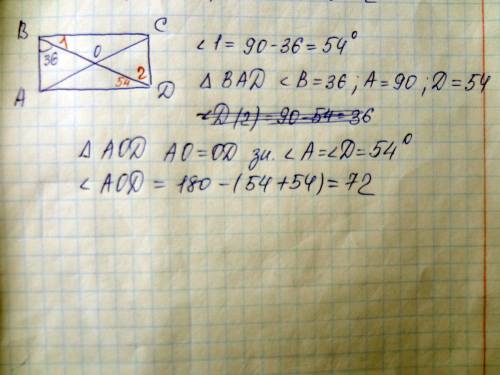 B C
1
36 O
54 2
A D
∠1 = 90-36 = 54°
Δ BAD ∠B = 36 ; A = 90 ; D = 54
∠D (2) = 90-54 = 36
Δ AOD AO = OD зн. ∠A = ∠D = 54°
∠ AOD = 180 - (54 + 54) = 72